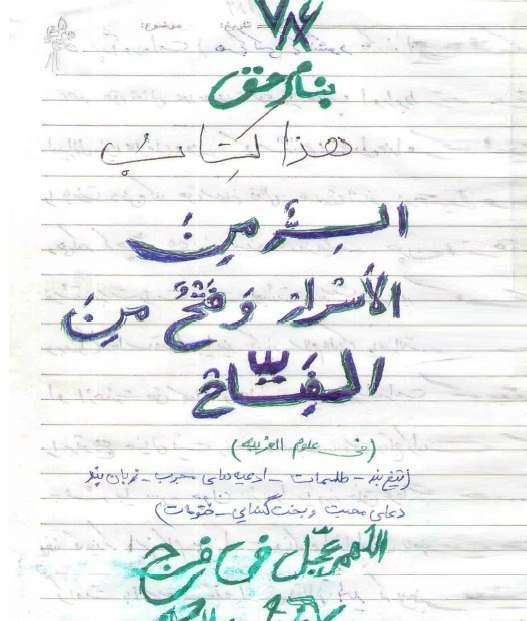 ۷۸۶
بنام حق
هذا كِتابُ
السِرَّ مِنَ
الأَسْرار وَ فَتْحٌ مِنَ
الفَتّاح
(فی علوم الغریبه)
(تیغ بند - طلسمات - ادعیه های مجرب - زبان بند
دعای محبت و بخت گشایی - ختومات)
اللهم عجّل فی فرج